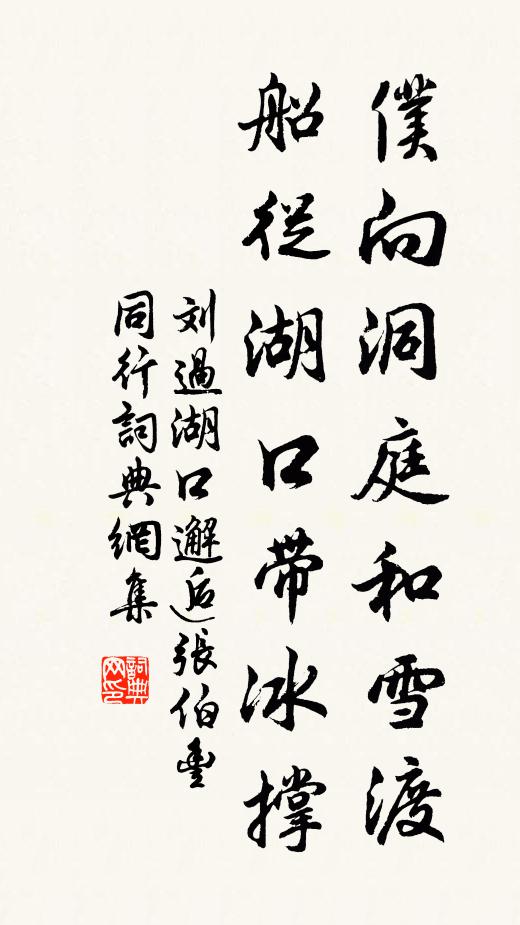 僕向洞庭和雪渡
船從湖口帶冰撐
刘過湖口邂逅張伯豐
同行詞典網集
詞典网印